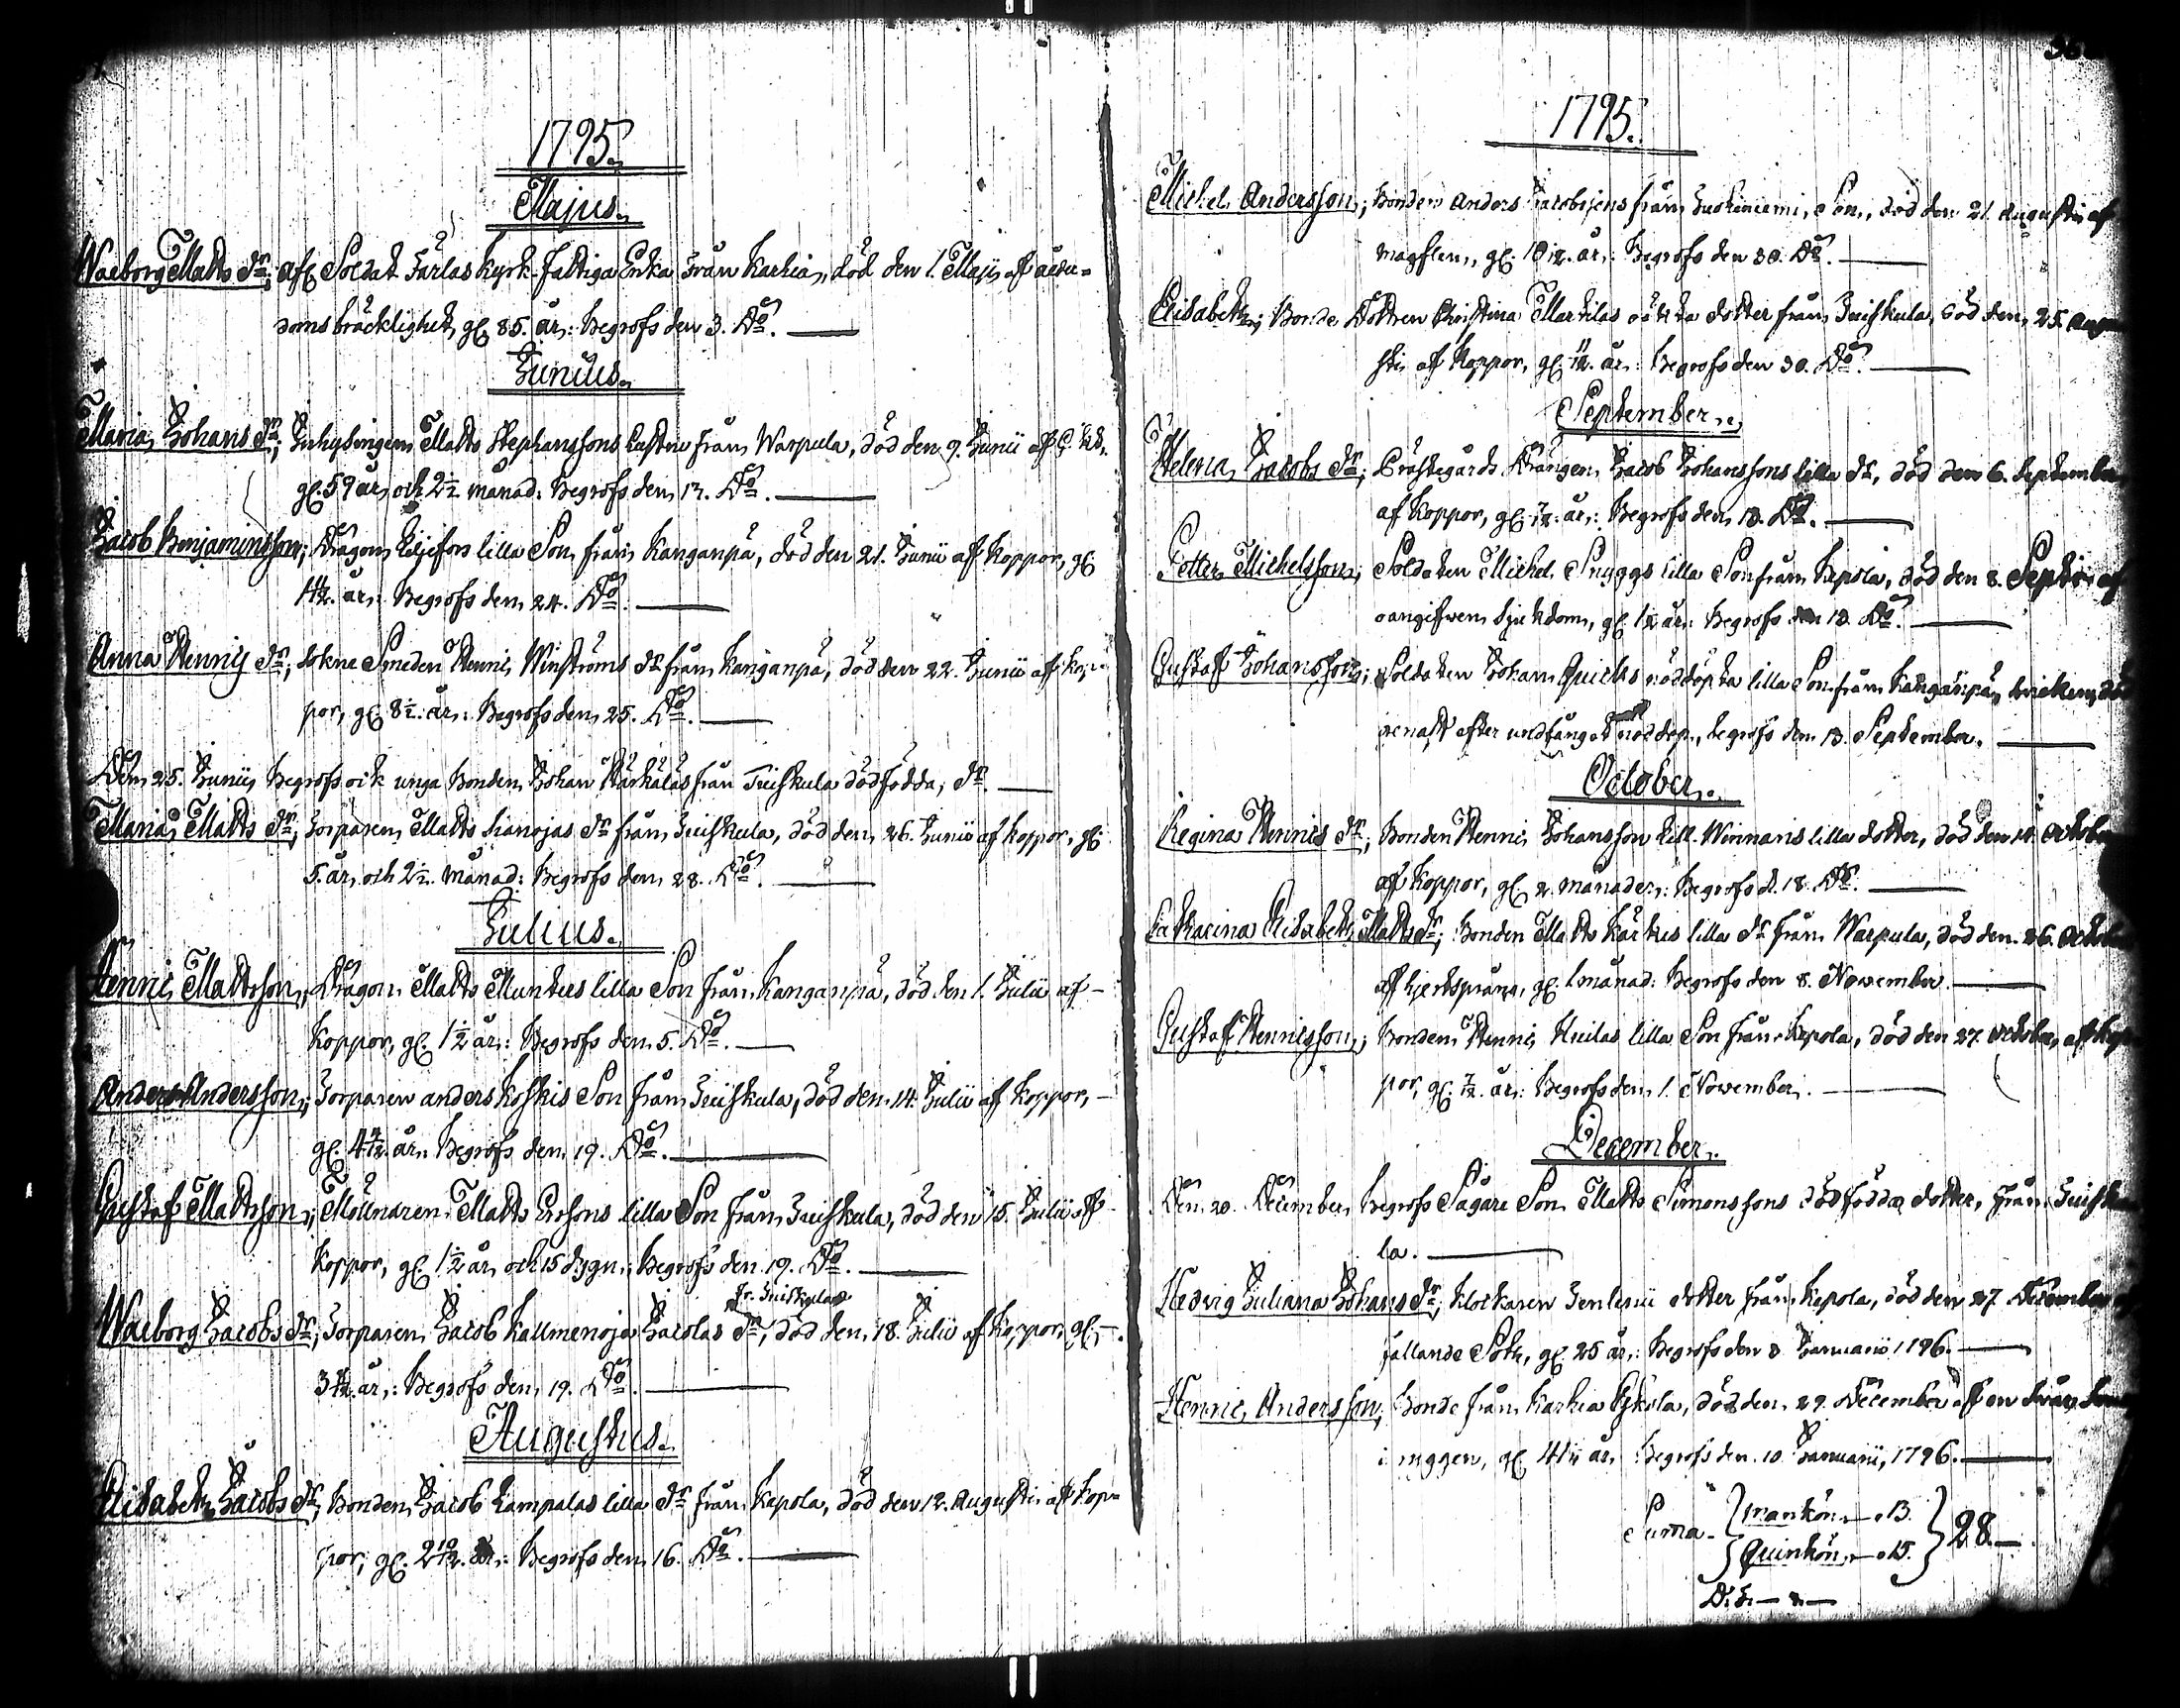 1795.
Majus.
Waeborg Matts dr; afl. Soldat Jarlas kyrk-fattiga Enka från Karkia, död den 1. Maji af ålder-
doms bräcklighet, gl. 85. år: Begrofs den 3. Do.
Junius.
Maria Johans dr; Inhysingen Matts Stephanssons hustru från Warpula, död den 9. Junii af
gl. 59 år och 2½ månad: Begrofs den 12. Do.
Jacob Benjaminsson; Dragon Liljefors lilla Son från Kanganpä, död den 21. Junii af koppor, gl.
år: Begrofs den 24. Do.
Anna Henrics dr; Sokne Smeden Henric Winströms dr från Kanganpä, död den 22. Junii af kop-
por, gl. 8½ år: Begrofs den 25. Do.
Den 25. Junii Begrofs ock unga Bonden Johan Härkäläs från Juiskula dödfödda dr.
Maria Matts dr; Torparen Matts Lianojas dr från Juiskula, död den 26. Junii af koppor, gl.
5. år och 2½ månad: Begrofs den 28. Do.
Julius.
Henric Mattsson; Dragon Matts Munters lilla Son från Kanganpä, död den 1. Julii af
koppor, gl. 1½ år: Begrofs den 5. Do.
Anders Andersson; Torparen Anders Koskis Son från Juiskula, död den 14. Julii af koppor,
gl. år: Begrofs den 19. Do.
Gustaf Mattsson; Mölnaren Matts Ersons lilla Son från Juiskula, död den 15. Julii af
koppor, gl. 1½ år och 15 dygn: Begrofs den 19. Do.
fr. Juiskula
Waeborg Jacobs dr; Torparen Jacob Kallmenoja Jacolas dr, död den 18. Julii af koppor, gl.
år: Begrofs den 19. Do.
Augustus.
Elisabeth Jacobs dr; Bonden Jacob Lampalas lilla dr från Kepola, död den 12. Augusti af kop-
por; gl. 2 10/12 år: Begrofs den 16. Do.
1795.
Michel Andersson; Bonden Anders Jacobsens från Juskiniemi, Son, död den 21. Augusti af
magflen, gl. år: Begrofs den 30. Do.
Elisabeth; Bonde Dottren Christina Martilas oächta dotter från Juiskula, död den 25. Augu
sti af koppor, gl. år: Begrofs den 30. Do.
September.
Helena Jacobs dr; Prästegårds Drängen Jacob Johanssons lilla dr, död den 6. September
af koppor, gl. 7/12 år: Begrofs den 13. Do.
Petter Michelsson; Soldaten Michel Snyggs lilla Son från Kepola, död den 8. Septbr af
oangifwen sjukdom, gl. 1½ år: Begrofs den 13. Do.
Gustaf Johansson; Soldaten Johan Quicks nöddöpta lilla Son från Kanganpä, hvicken, död
genast efter undfånget nöddop, begrofs den 13. September.
October.
Regina Henrics dr; Bonden Henric Johansson Lill-Winnaris lilla dotter, död den 14. October
af koppor, gl. 2. månader: Begrofs d. 18. Do.
Catharina Elisabeth Matts dr; Bonden Matts Kärkis lilla dr från Warpula, död den 26. October
af hjertsprång, gl. 1 månad: Begrofs den 8. November.
Gustaf Henricsson; Bonden Henric Huilas lilla Son från Kepola, död den 27. October, af kop
por, gl. 7/12 år: Begrofs den 1. November.
December.
Den 20. December Begrofs Sågare Son Matts Simonssons dödfödda dotter, från Juisku
la.
Hedvig Juliana Johans dr; Klockaren Zenlenii dotter från Kepola, död den 27. December
fallande Sot, gl. 25 år: Begrofs den 8 Januarii 1796.
Henric Andersson; Bonde från Karkia Kykola, död den 29. December af en svår
i ryggen, gl. år Begrofs den 10 Januarii, 1796.
Suma- mankön 13.
Quinkön 15. 28.